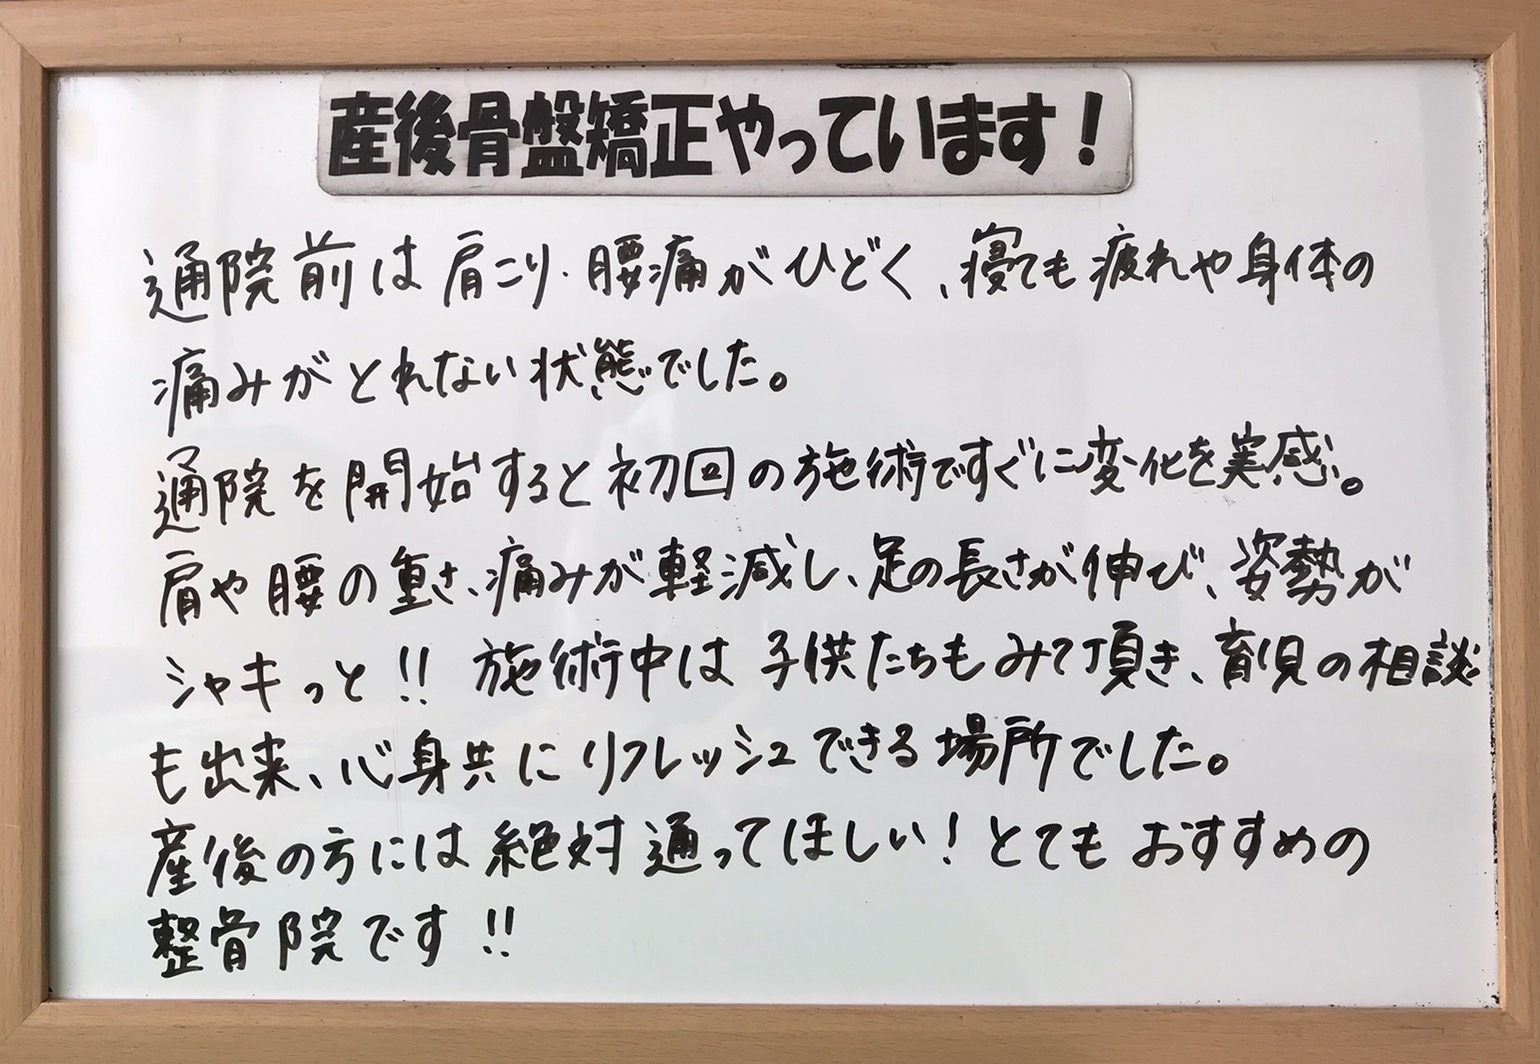 産後骨盤矯正やっています！
通院前は肩こり・腰痛がひどく、寝ても疲れや身体の
痛みがとれない状態でした。
通院を開始すると初回の施術ですぐに変化を実感。
肩や腰の重さ、痛みが軽減し、足の長さが伸び、姿勢が
シャキっと!! 施術中は子供たちもみて頂き、育児の相談
も出来、心身共にリフレッシュできる場所でした。
産後の方には絶対通ってほしい！とてもおすすめの
整骨院です!!